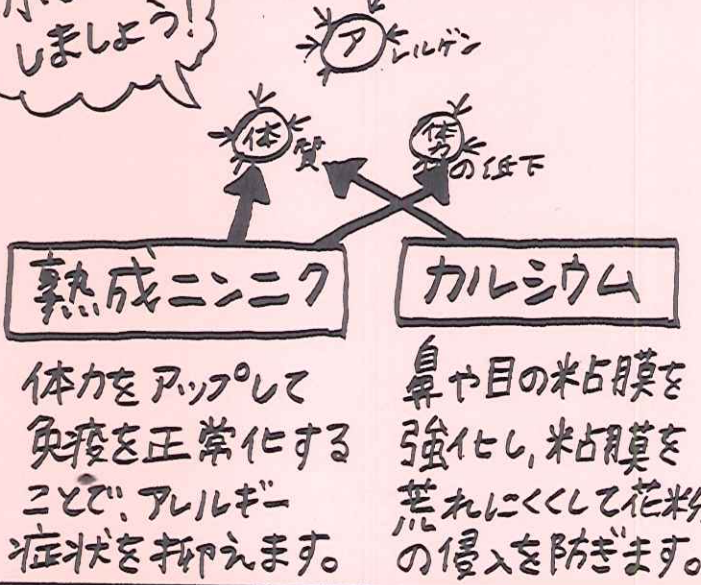 しましょう!
アレルゲン
体質
体力の低下
熟成ニンニク
カルシウム
体力をアップして
免疫を正常化する
ことで、アレルギー
症状を抑えます。
鼻や目の粘膜を
強化し、粘膜を
荒れにくくして花粉
の侵入を防ぎます。